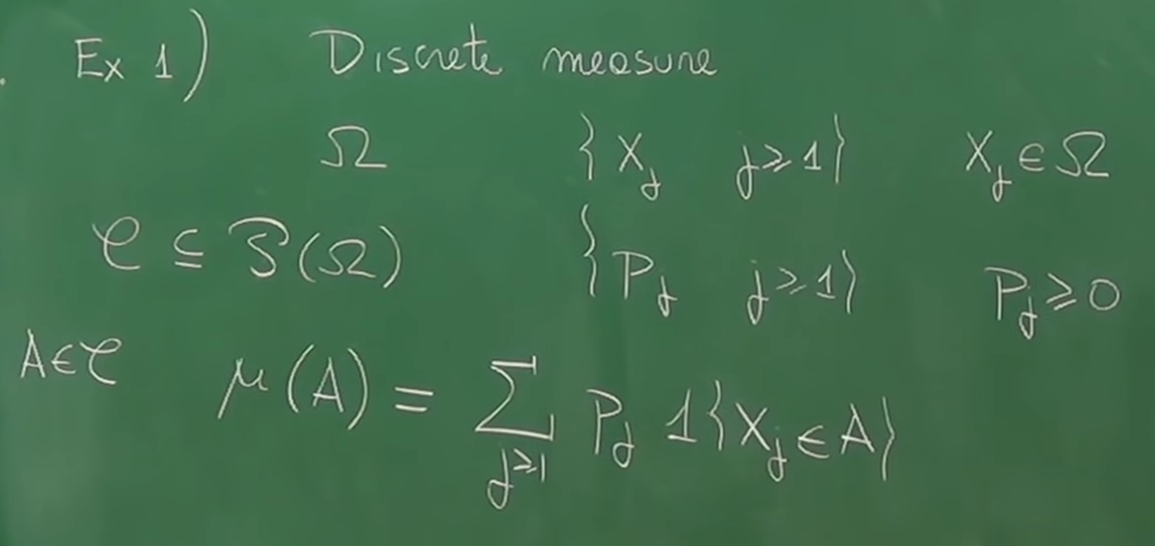 Ex 1) Discrete measure
Ω {X_j j⩾1} X_j ∈ Ω
𝒞 ⊆ 𝒫(Ω) {P_j j⩾1} P_j ⩾ 0
A∈𝒞 μ(A) = ∑_{j⩾1} P_j 1{X_j ∈ A}